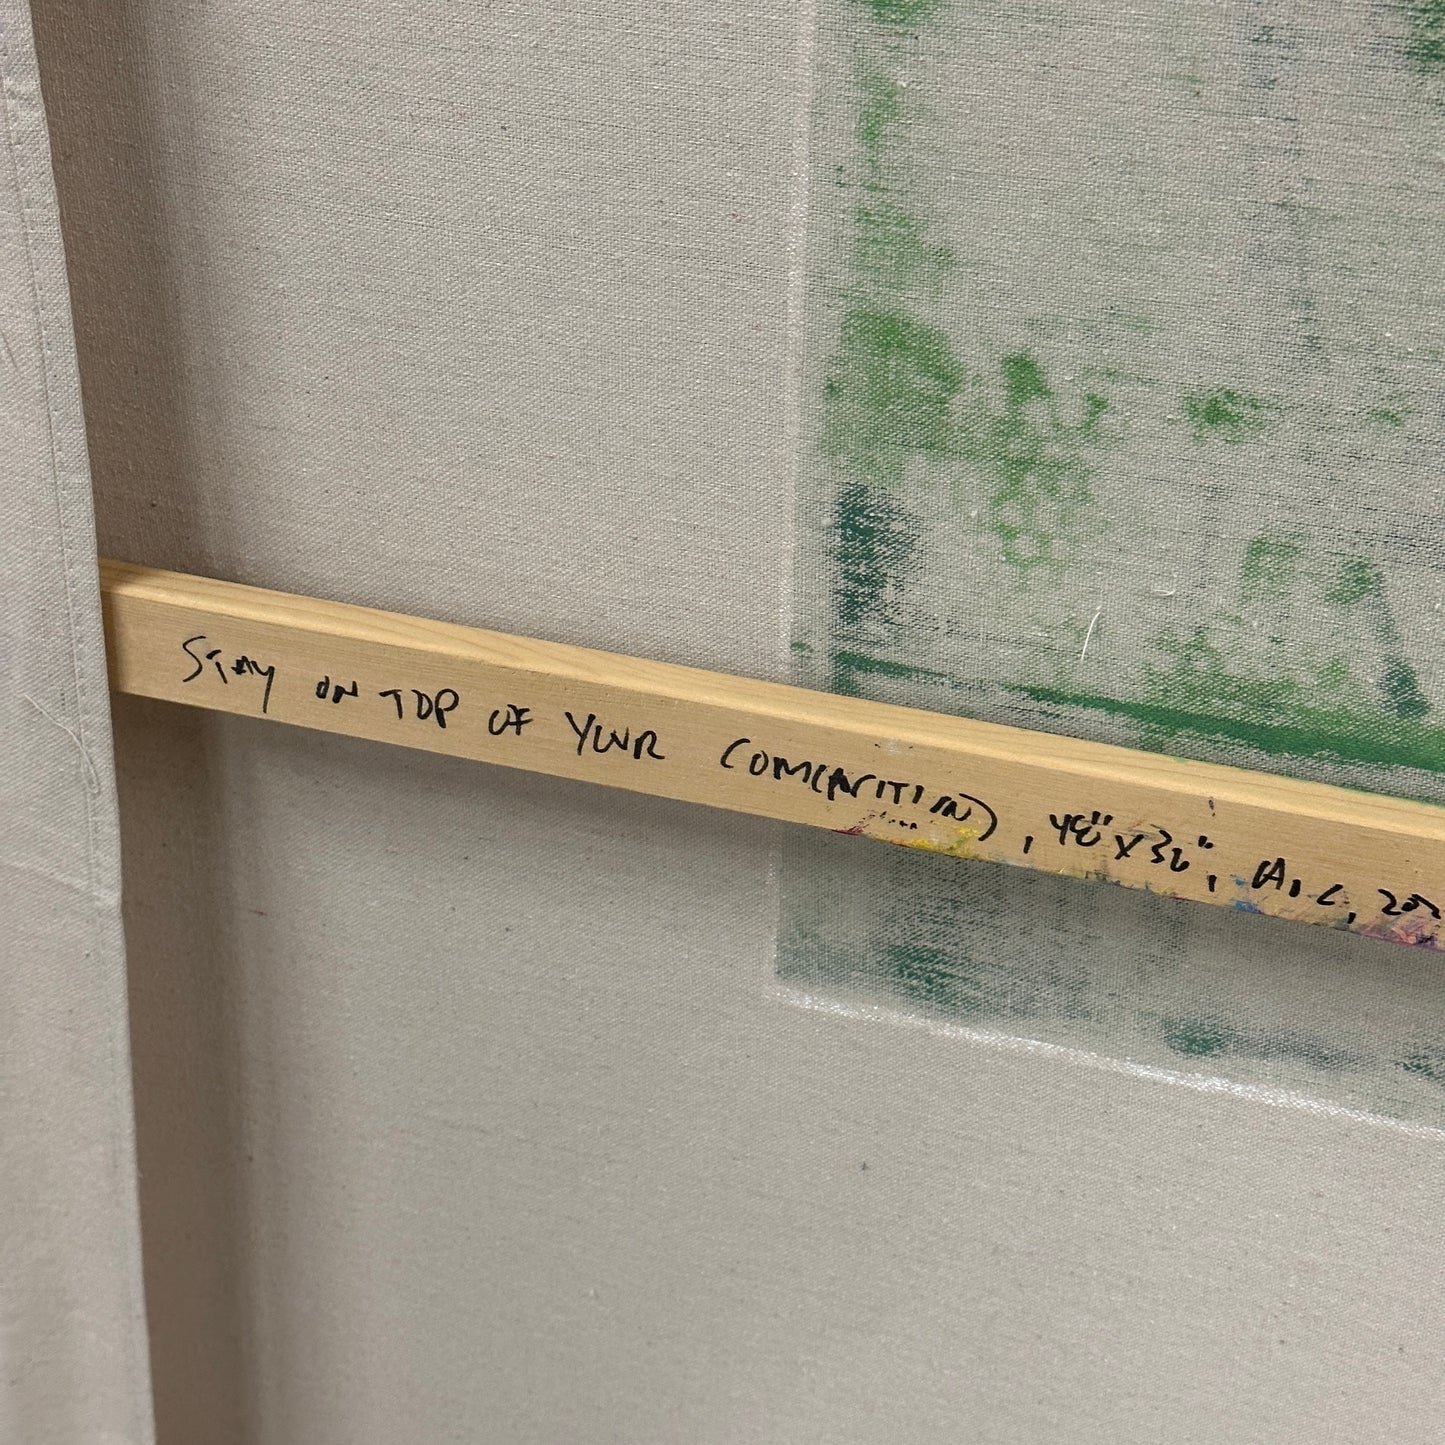 STAY ON TOP OF YOUR COMPETITION, 48"x36", A.C, 202